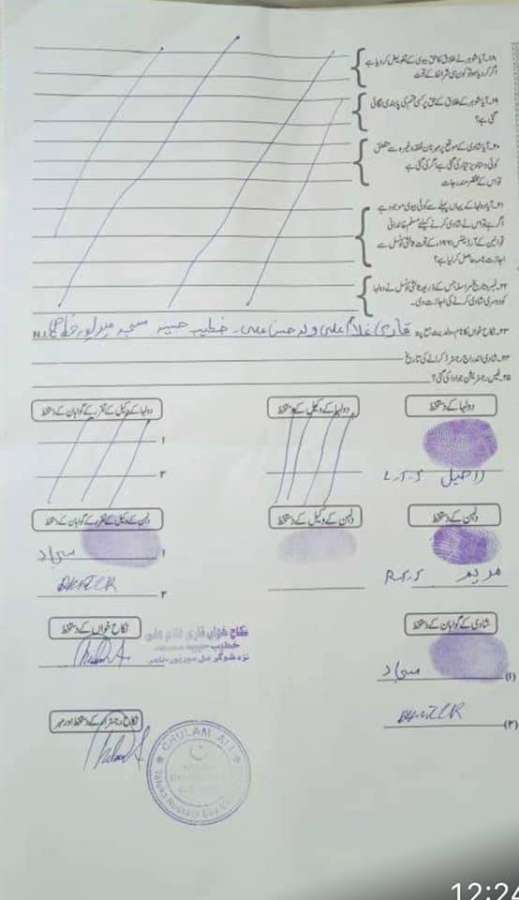 ۱۸۔ آیا شوہر نے طلاق کا حق بیوی کے تفویض کر دیا ہے
اگر کر دیا ہے تو کون سی شرائط کے تحت
۱۹۔ آیا شوہر کے طلاق کے حق پر کسی قسم کی پابندی لگائی
گئی ہے؟
۲۰۔ آیا شادی کے موقع پر مہر نان نفقہ وغیرہ سے متعلق
کوئی دستاویز تیار کی گئی ہے اگر کی گئی ہے
تو اس کے مختصر مندرجات
۲۱۔ آیا دولہا کے یہاں پہلے سے کوئی بیوی موجود ہے
اگر ہے تو اس نے شادی کرنے کیلئے مسلم خاندانی
قوانین کے آرڈیننس ۱۹۶۱ء کے تحت ثالثی کونسل سے
اجازت نامہ حاصل کر لیا ہے؟
۲۲۔ نمبر و تاریخ مراسلہ جس کے ذریعہ ثالثی کونسل نے دولہا
کو دوسری شادی کرنے کی اجازت دی۔
۲۳۔ نکاح خواں کا نام، ولدیت مع پتہ قاری غلام علی ولد حسن علی۔ خطیب مسجد
۲۴۔ شادی اندراج رجسٹر کرانے کی تاریخ
۲۵۔ فیس رجسٹریشن جو ادا کی گئی؟
دولہا کے دستخط
دولہا کے وکیل کے دستخط
دولہا کے وکیل کے تقرر کے گواہان کے دستخط
۱
۲
راحیل L.T.I
دولہن کے دستخط
دلہن کے وکیل کے دستخط
دلہن کے وکیل کے تقرر کے گواہان کے دستخط
۱ سجاد
مریم R.T.I
۲
شادی کے گواہان کے دستخط
نکاح خواں کے دستخط
نکاح خواں قاری غلام علی
خطیب
(۱) سجاد
(۲)
نکاح رجسٹرار کے دستخط اور مہر
GHULAM ALI
12:24